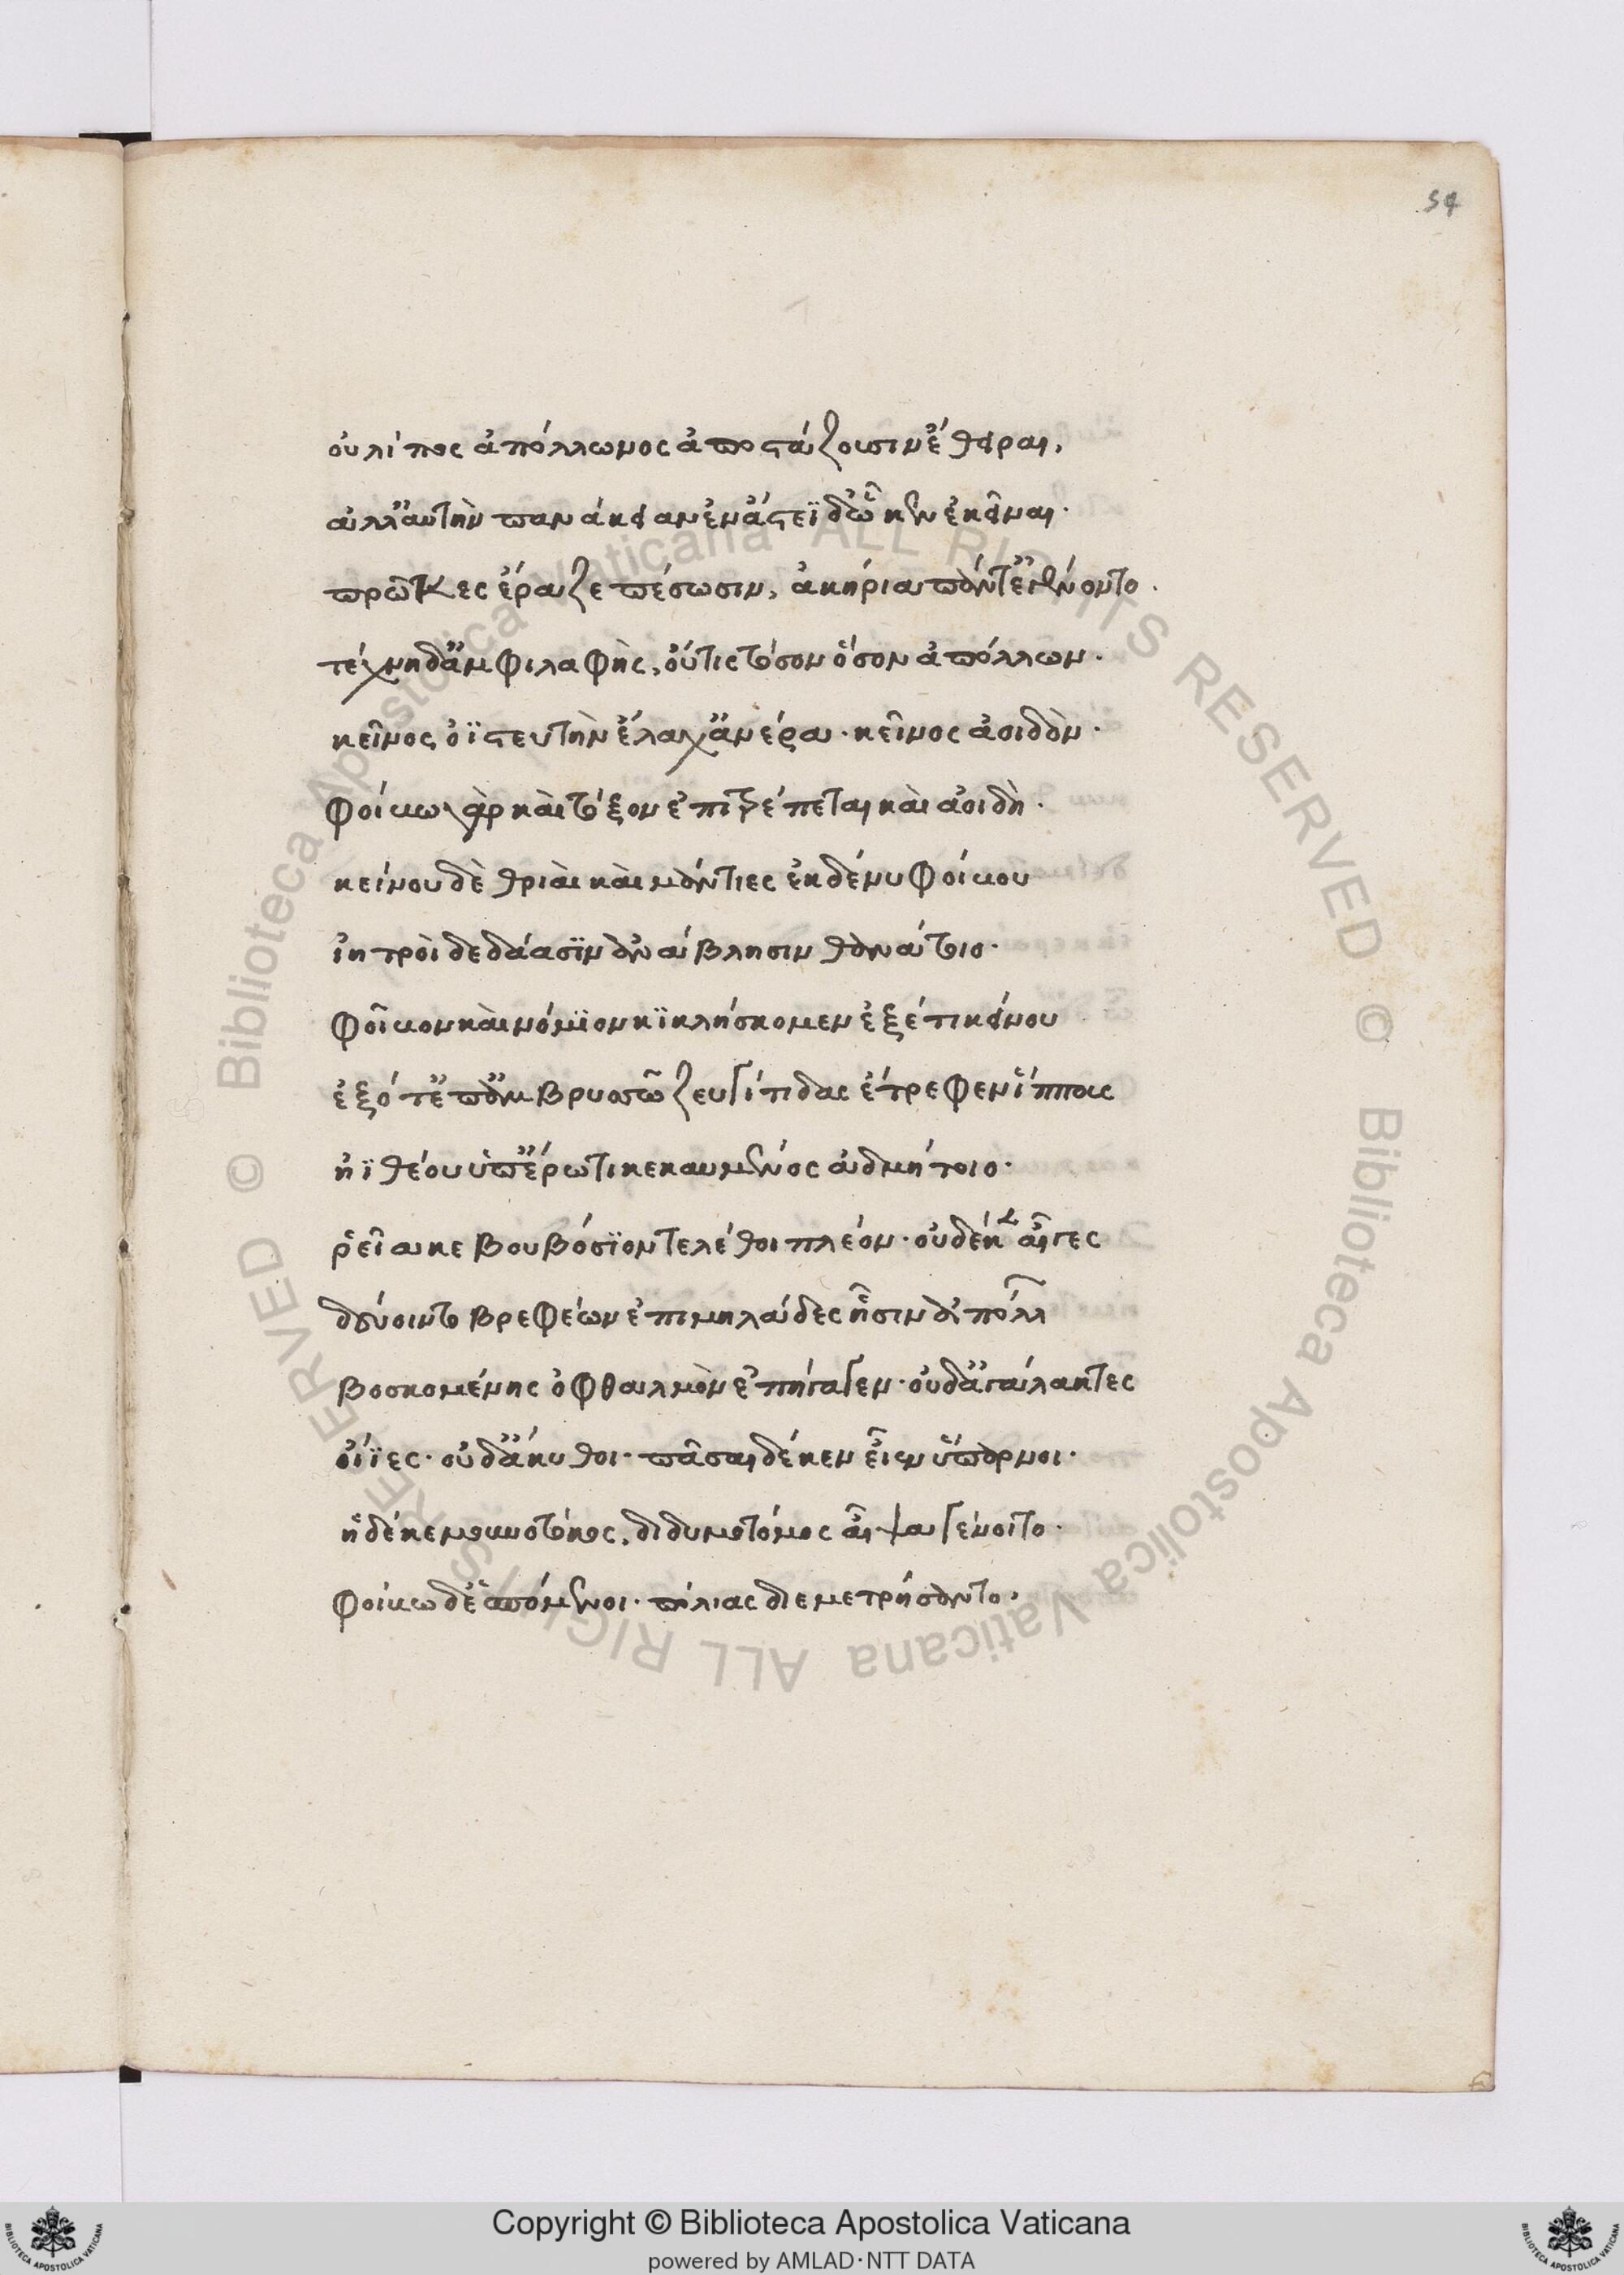 54
οὐ λίπος ἀπόλλωνος ἀποστάζουσιν ἔθειραι,
ἀλλ' αὐτὴν πανάκειαν ἐν ἄστεϊ δ' ᾧ κεν ἐκεῖναι·
πρῶκες ἔραζε πέσωσιν, ἀκήρια πάντ' ἐγένοντο·
τέχνη δ' ἀμφιλαφὴς, οὔτις τόσον ὅσον ἀπόλλων·
κεῖνος ὀϊστευτὴν ἔλαχ' ἀνέρα· κεῖνος ἀοιδόν·
φοίβω γὰρ καὶ τόξον ἐπιτρέπεται καὶ ἀοιδή·
κείνου δὲ θριαὶ καὶ μάντιες ἐκ δέ νυ φοίβου
ἰητροὶ δεδάασϊν ἀνάβλησιν θανάτοιο·
φοῖβον καὶ νόμϊον κϊκλήσκομεν ἐξέτι κείνου
ἐξότ' ἐπ' ἀμβρυσῶ ζευγίτιδας ἔτρεφεν ἵππους
ἠϊθέου ὑπ' ἔρωτι κεκαυμένος ἀδμήτοιο·
ῥεῖα κε βουβόσϊον τελέθοι πλέον· οὐδέ κ αἶγες
δεύοιντο βρεφέων ἐπιμηλάδες ᾗσιν ἀπόλλ
βοσκομένης ὀφθαλμὸν ἐπήγαγεν· οὐδ' ἀγάλακτες
οἴϊες· οὐδ' ἄκυθοι· πᾶσαι δέ κεν εἶεν ὕπαρνοι·
ἡ δέ κε μουνοτόκος, διδυμοτόκος αἶψα γένοιτο·
φοίβω δ' ἑσπόμενοι· πόλιας διεμετρήσαντο·
© Biblioteca Apostolica Vaticana ALL RIGHTS RESERVED
© Biblioteca Apostolica Vaticana ALL RIGHTS RESERVED
Copyright © Biblioteca Apostolica Vaticana
powered by AMLAD·NTT DATA
BIBLIOTECA APOSTOLICA VATICANA
BIBLIOTECA APOSTOLICA VATICANA